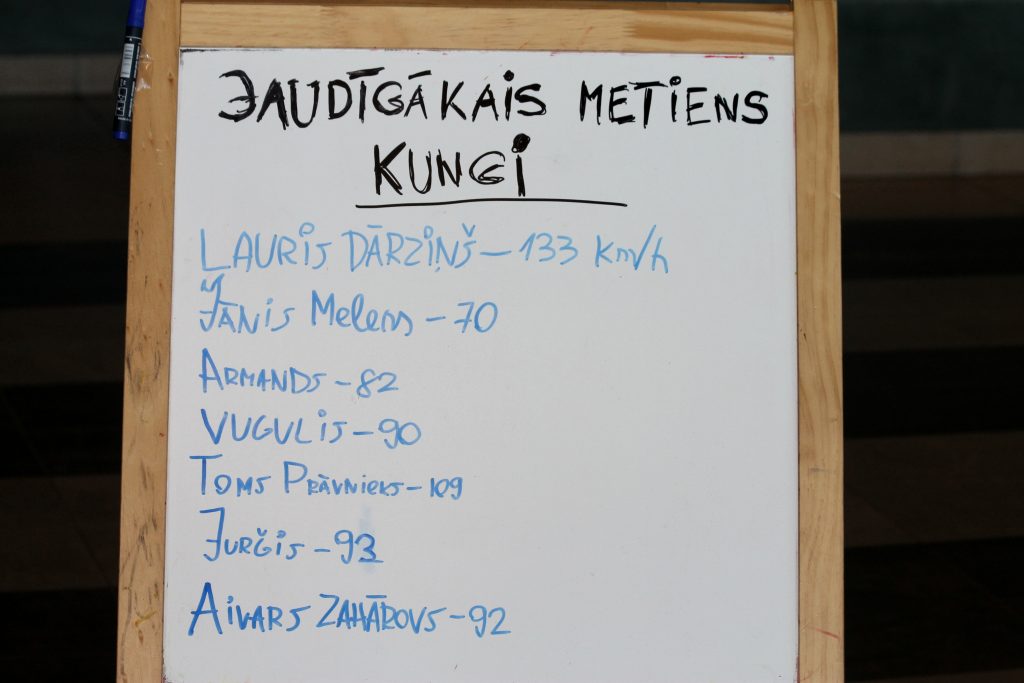 JAUDĪGĀKAIS METIENS
KUNGI
LAURIS DĀRZIŅŠ – 133 km/h
JĀNIS Melens – 70
ARMANDS – 82
VUGULIS – 90
TOMS PRĀVNIEKS – 109
JURĢIS – 93
AIVARS ZAHĀROVS – 92